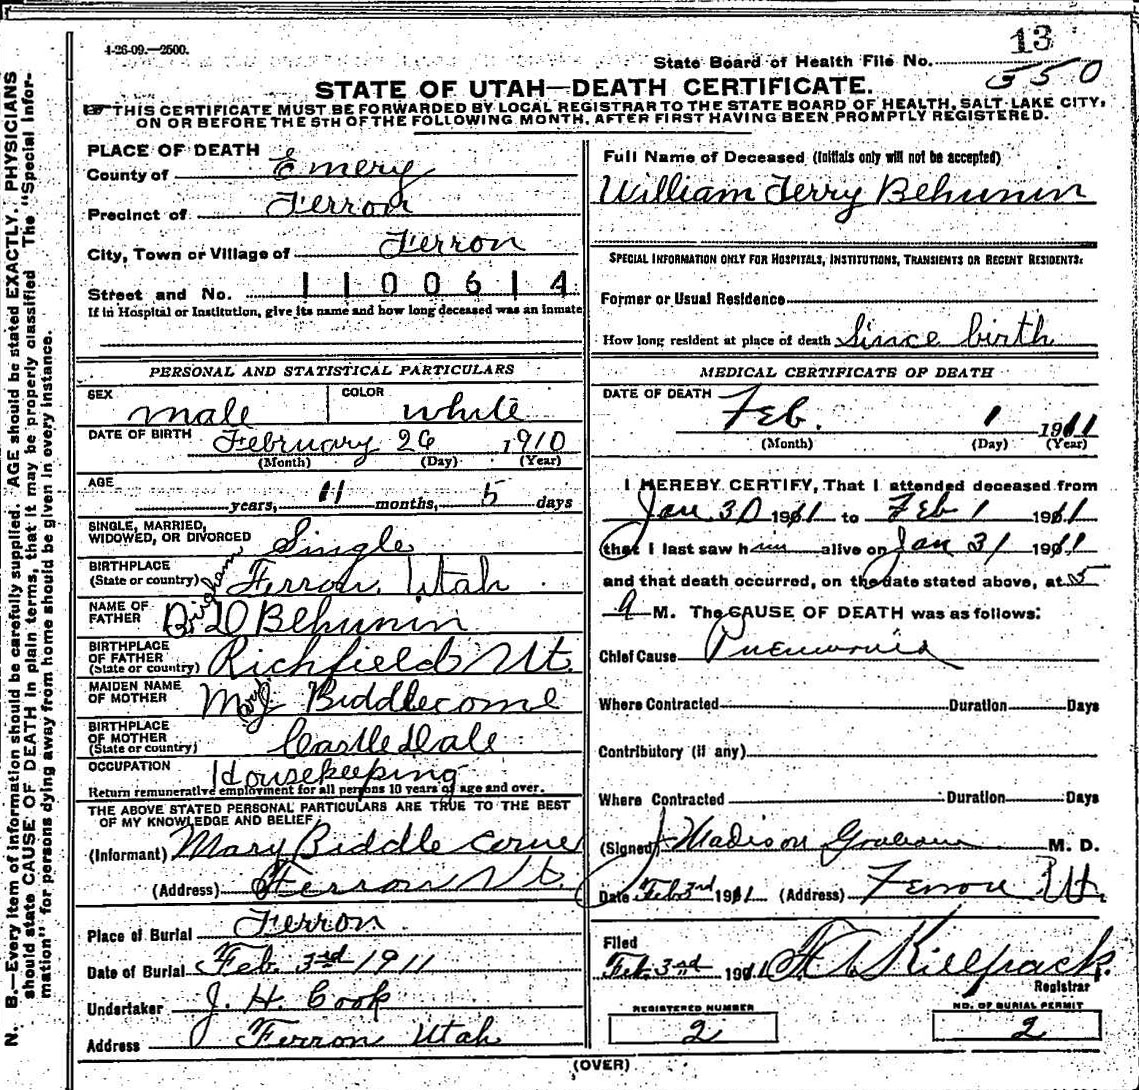 4-26-09.—2500.
13
State Board of Health File No. 350
STATE OF UTAH—DEATH CERTIFICATE.
☞ THIS CERTIFICATE MUST BE FORWARDED BY LOCAL REGISTRAR TO THE STATE BOARD OF HEALTH, SALT LAKE CITY,
ON OR BEFORE THE 5TH OF THE FOLLOWING MONTH, AFTER FIRST HAVING BEEN PROMPTLY REGISTERED.
PLACE OF DEATH
County of Emery
Precinct of Ferron
City, Town or Village of Ferron
Street and No. 1100614
If in Hospital or Institution, give its name and how long deceased was an inmate
PERSONAL AND STATISTICAL PARTICULARS
SEX male COLOR white
DATE OF BIRTH February 26 1910
(Month) (Day) (Year)
AGE
years, 11 months, 5 days
SINGLE, MARRIED,
WIDOWED, OR DIVORCED Single
BIRTHPLACE
(State or country) Ferron, Utah
NAME OF
FATHER Brigham D Behunin
BIRTHPLACE
OF FATHER
(State or country) Richfield Ut.
MAIDEN NAME
OF MOTHER Mary J Biddlecome
BIRTHPLACE
OF MOTHER
(State or country) Castle Dale
OCCUPATION Housekeeping
Return remunerative employment for all persons 10 years of age and over.
THE ABOVE STATED PERSONAL PARTICULARS ARE TRUE TO THE BEST
OF MY KNOWLEDGE AND BELIEF,
(Informant) Mary Biddle come
(Address) Ferron Ut.
Place of Burial Ferron
Date of Burial Feb. 3rd 1911
Undertaker J. H. Cook
Address Ferron Utah
Full Name of Deceased (Initials only will not be accepted)
William Terry Behunin
SPECIAL INFORMATION ONLY FOR HOSPITALS, INSTITUTIONS, TRANSIENTS OR RECENT RESIDENTS.
Former or Usual Residence
How long resident at place of death Since birth
MEDICAL CERTIFICATE OF DEATH
DATE OF DEATH Feb. 1 1911
(Month) (Day) (Year)
I HEREBY CERTIFY, That I attended deceased from
Jan 30 1911 to Feb 1 1911
that I last saw him alive on Jan 31 1911
and that death occurred, on the date stated above, at 5
a M. The CAUSE OF DEATH was as follows:
Chief Cause Pneumonia
Where Contracted Duration Days
Contributory (if any)
Where Contracted Duration Days
(Signed) J Madison Graham M. D.
Date Feb 3rd 1911 (Address) Ferron Ut.
Filed
Feb. 3rd 1911 Killpack
Registrar
REGISTERED NUMBER
2
NO. OF BURIAL PERMIT
2
(OVER)
N. B.—Every item of information should be carefully supplied. AGE should be stated EXACTLY. PHYSICIANS
should state CAUSE OF DEATH in plain terms, that it may be properly classified. The "Special Infor-
mation" for persons dying away from home should be given in every instance.